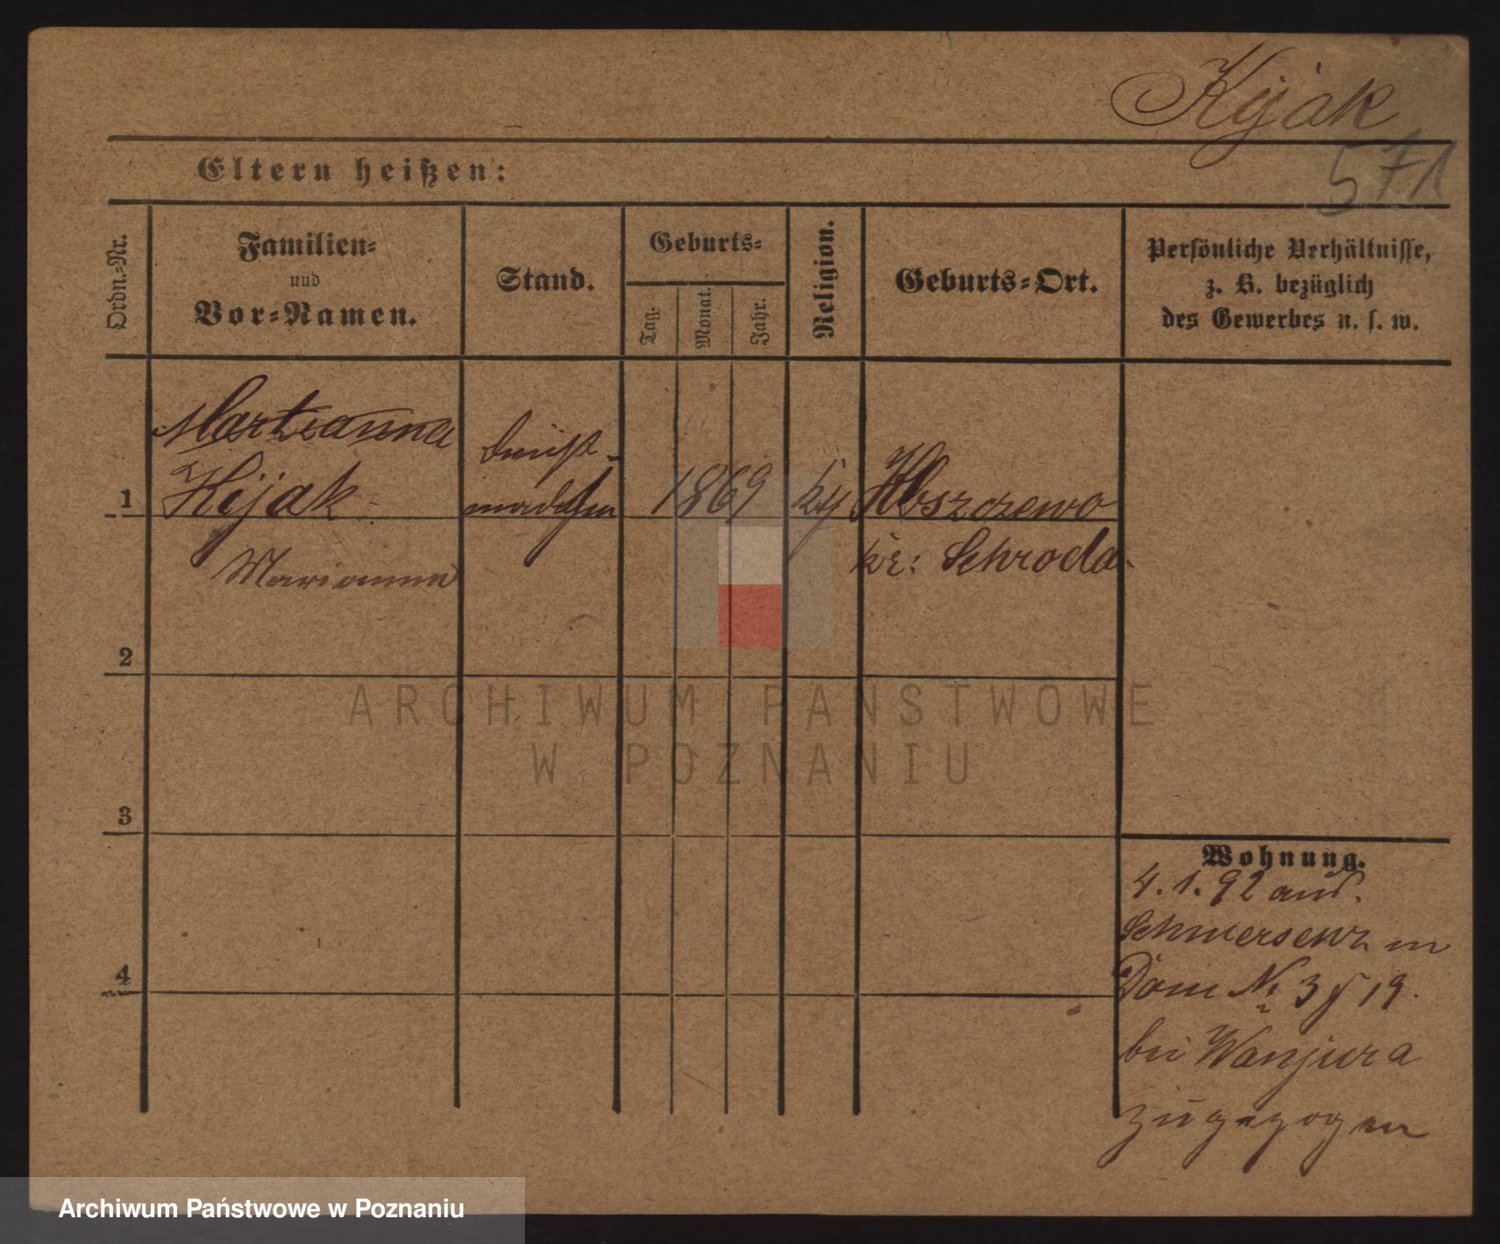 Kijak
571
Eltern heißen:
Ordn.-Nr.
Familien-
und
Vor-Namen.
Stand.
Geburts-
Tag.
Monat.
Jahr.
Religion.
Geburts-Ort.
Persönliche Verhältnisse,
z. B. bezüglich
des Gewerbes u. s. w.
1
Martianna
Kijak
Marianna
Dienst-
mädchen
1869
Kbszczewo
kr: Schroda.
2
3
4
Wohnung.
4. 1. 92 aus.
Schwersenz in
Dom No 3 / 19.
bei Wanjura
zugezogen
ARCHIWUM PAŃSTWOWE
W POZNANIU
Archiwum Państwowe w Poznaniu